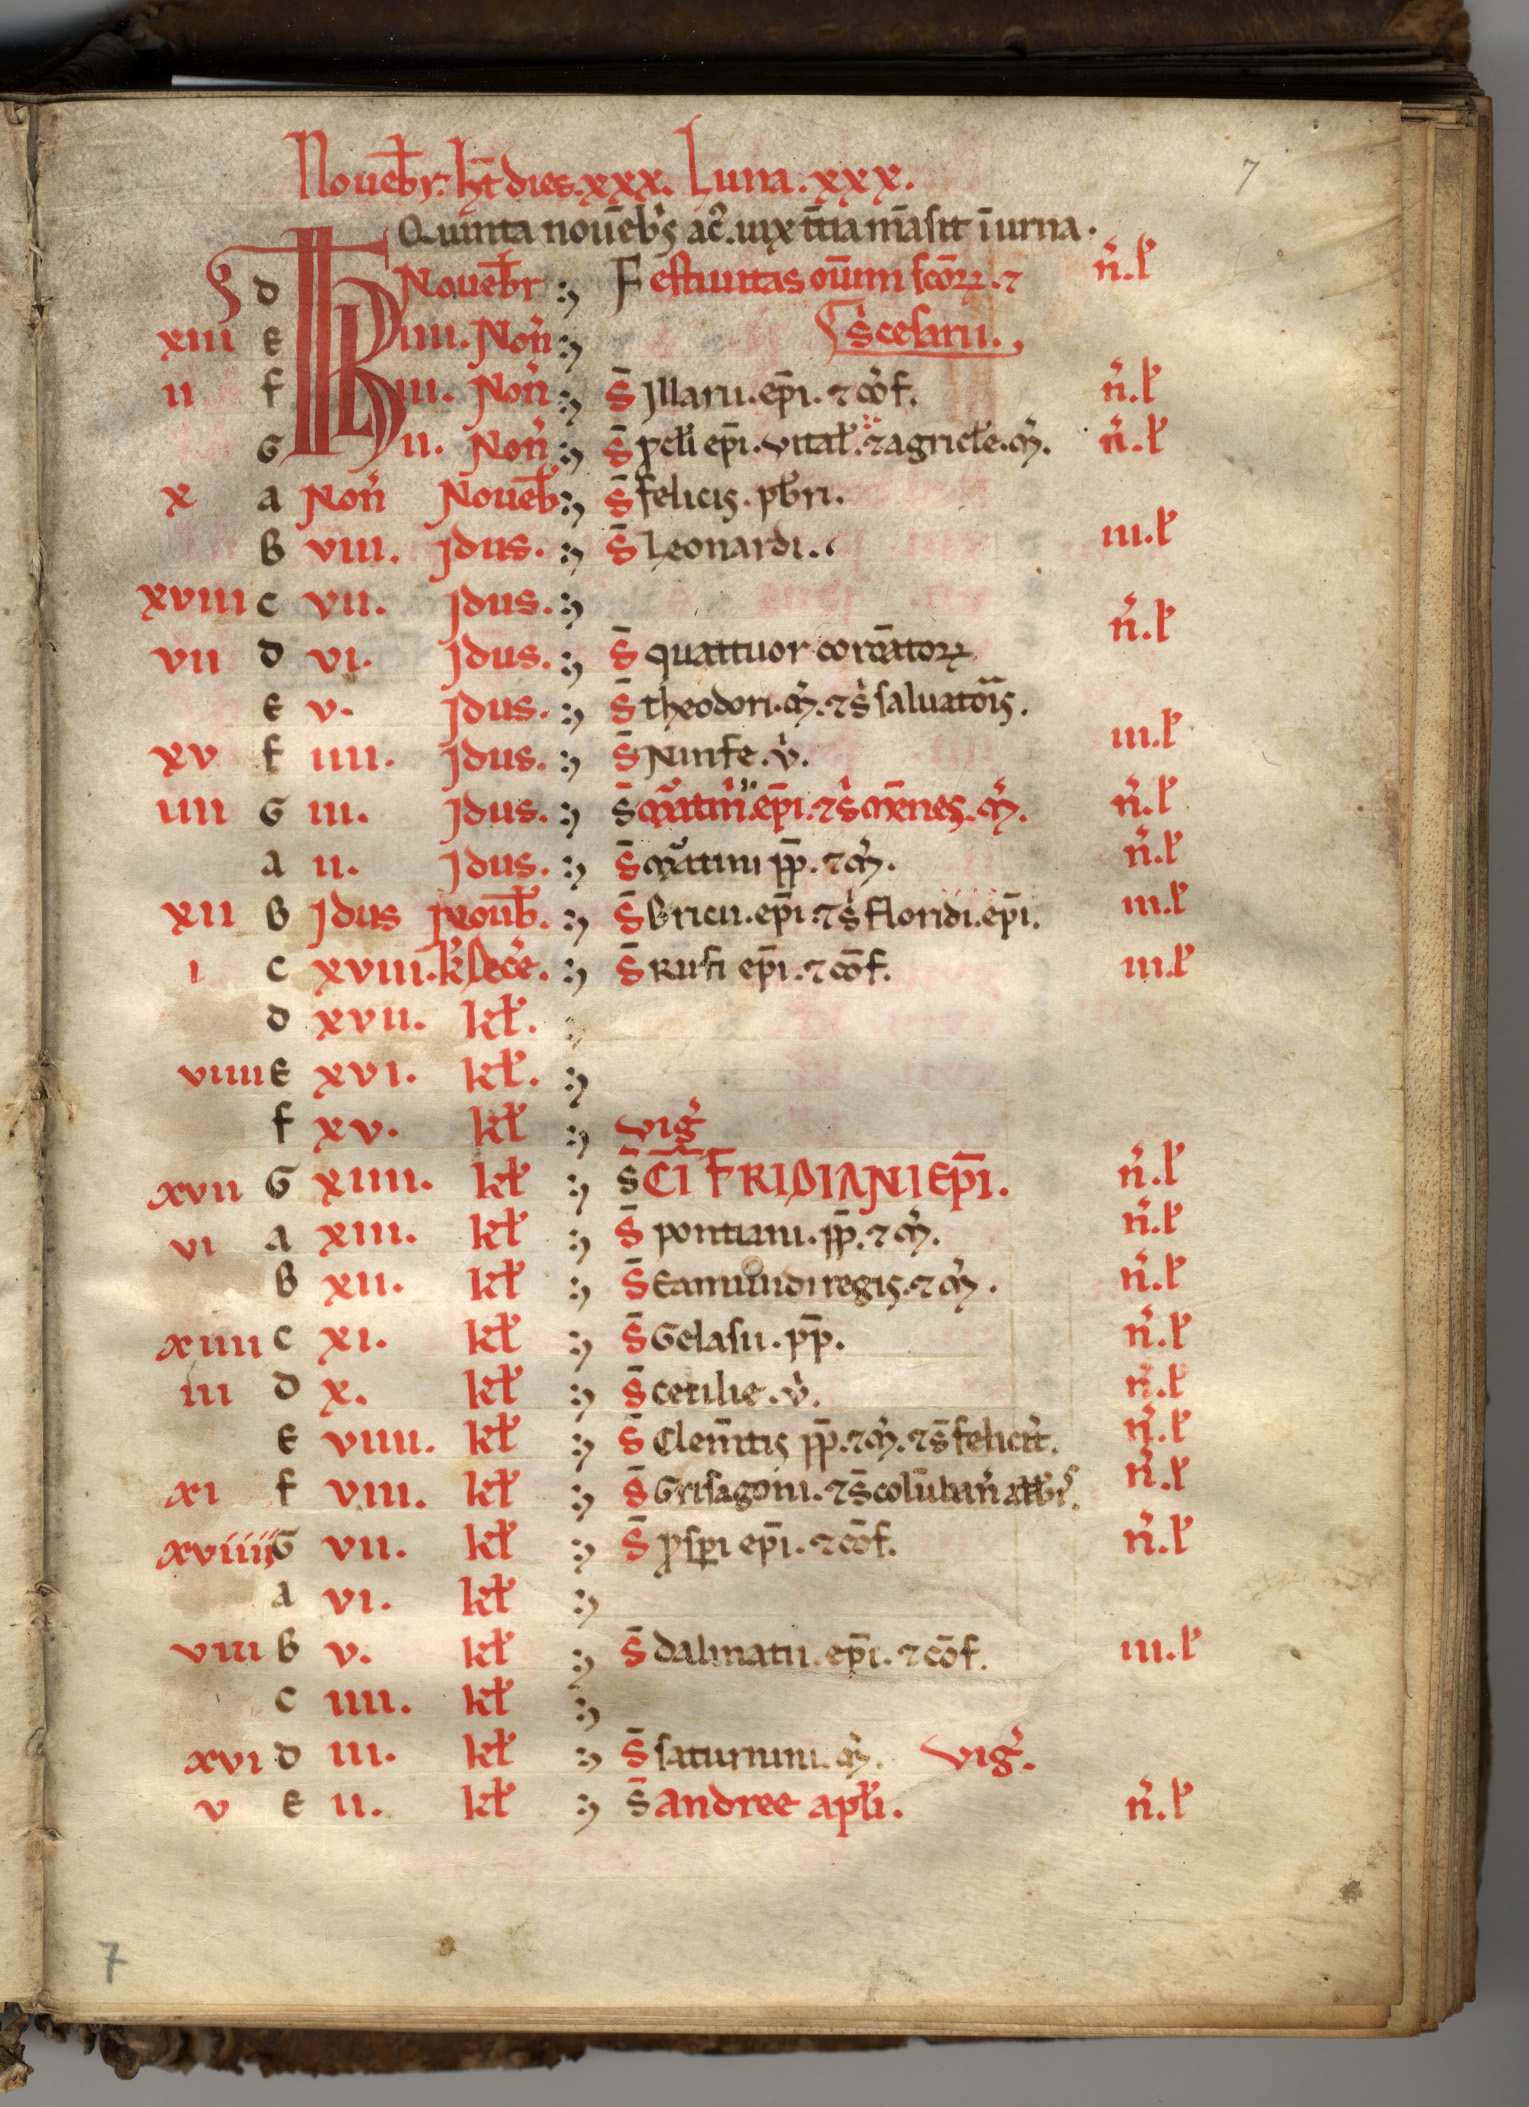 7
Nouēbr̄. hт̄ dies. xxx. Luna. xxx.
Quinta nouēb's ac̄. uix t̄tia māsit ī urna.
d KL Nouēbr̄ :, Festiuitas oūm sc̄oꝝ. ⁊ n̄.ł
xiii E iiii. Non̄ :, S̄ cesarii.
ii f iii. Non̄ :, S̄ Jllarii. ep̄i. ⁊ cōf. n̄.ł
G ii. Non̄ :, S̄ ꝓcłi ep̄i. vitał. ⁊ agricłe. m̄. n̄.ł
x a Non̄ Nouēb :, S̄ felicis. pb̄ri.
B viii. Jdus. :, S̄ Leonardi. iii.ł
xviii c vii. Jdus. :,
vii d vi. Jdus. :, S̄ quattuor coronātoꝝ n̄.ł
E v. Jdus. :, S̄ theodori. m̄. ⁊ s̄ saluatōis.
xv f iiii. Jdus. :, S̄ Ninfe. v̄. iii.ł
iiii G iii. Jdus. :, S̄ mārtini. ep̄i. ⁊ s̄ mēnes. m̄. n̄.ł
a ii. Jdus. :, S̄ mārtini pp̄. ⁊ m̄. n̄.ł
xii B Jdus Nouēb. :, S̄ Bricii. ep̄i. ⁊ s̄ floridi. ep̄i. iii.ł
i c xviii. kł Decē. :, S̄ Rufi ep̄i. ⁊ cōf. iii.ł
d xvii. kł. :,
viiii E xvi. kł. :,
f xv. kł :, viḡ
xvii G xiiii. kł :, S̄C̄I FRIDIANI Ep̄I. n̄.ł
vi a xiii. kł :, S̄ pontiani. pp̄. ⁊ m̄. n̄.ł
B xii. kł :, S̄ Eamundi regis. ⁊ m̄. n̄.ł
xiiii c xi. kł :, S̄ Gelasii. pp̄. n̄.ł
iii d x. kł :, S̄ cecilie. v̄. n̄.ł
E viiii. kł :, S̄ Clem̄tis pp̄. ⁊ m̄. ⁊ s̄ felicit̄. n̄.ł
xi f viii. kł :, S̄ Grisagoni. ⁊ s̄ colūban̄ abb̄is. n̄.ł
xviiii G vii. kł :, S̄ ꝓsꝑi ep̄i. ⁊ cōf. n̄.ł
a vi. kł :,
viii B v. kł :, S̄ dalmatii. ep̄i. ⁊ cōf. iii.ł
c iiii. kł :,
xvi d iii. kł :, S̄ saturnini. m̄. viḡ.
v E ii. kł :, S̄ andree apłi. n̄.ł
7